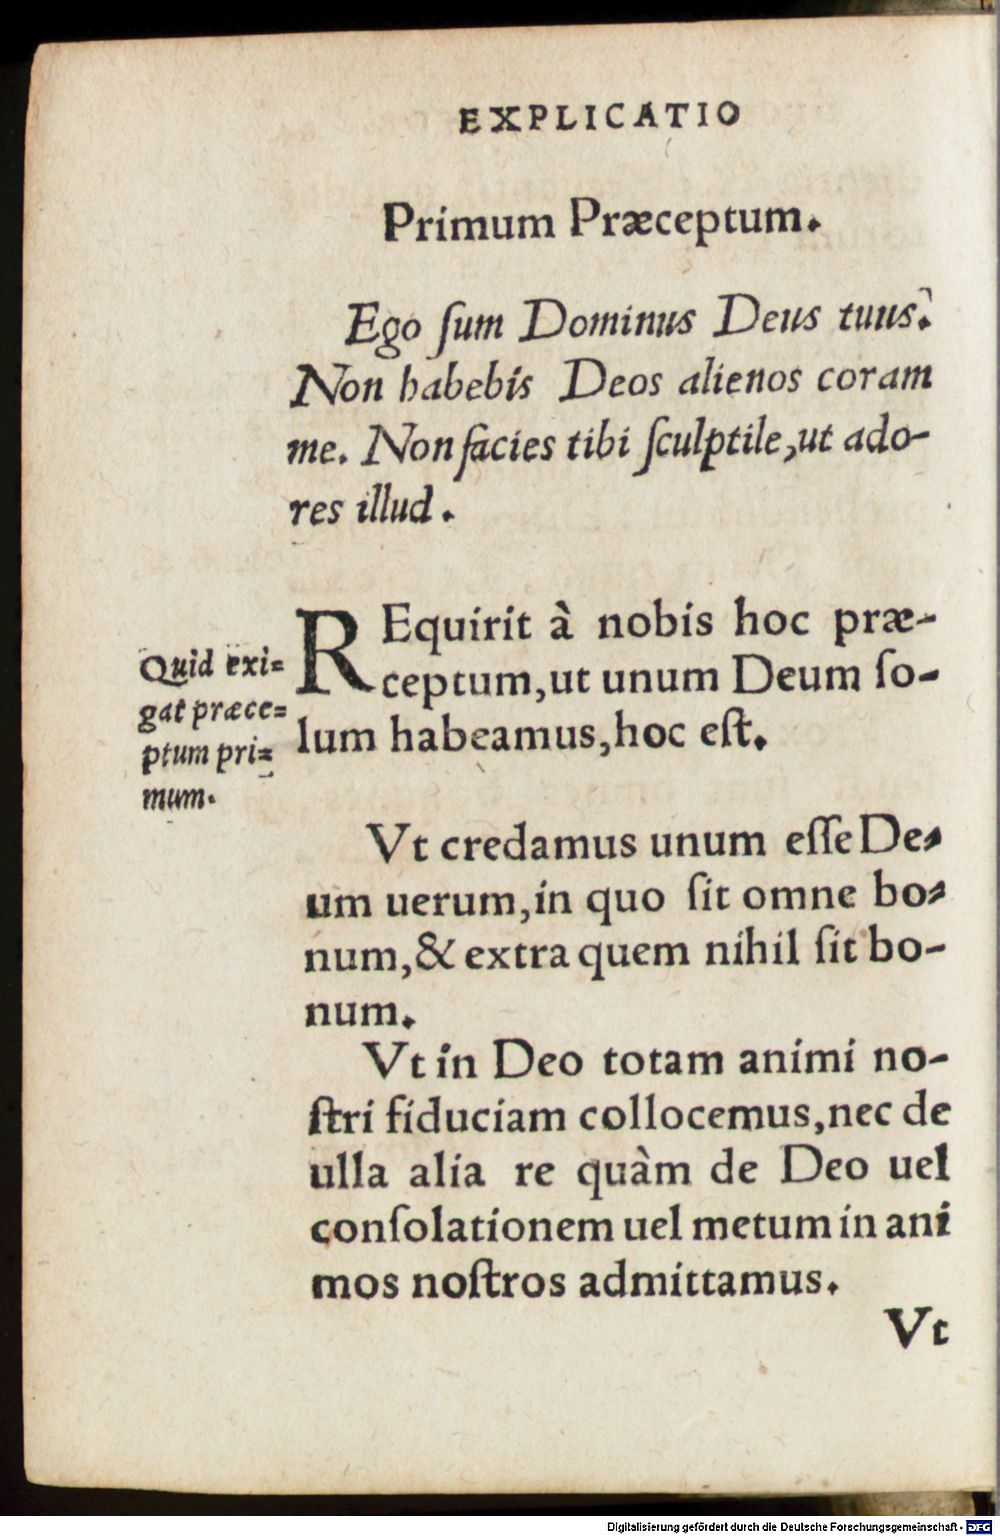 EXPLICATIO
Primum Præceptum.
Ego ſum Dominus Deus tuus.
Non habebis Deos alienos coram
me. Non facies tibi ſculptile, ut ado-
res illud.
Quid exi=
gat præce=
ptum pri=
mum.
REquirit à nobis hoc præ-
ceptum, ut unum Deum ſo-
lum habeamus, hoc eſt.
Vt credamus unum eſſe De-
um uerum, in quo ſit omne bo-
num, & extra quem nihil ſit bo-
num.
Vt in Deo totam animi no-
ſtri fiduciam collocemus, nec de
ulla alia re quàm de Deo uel
conſolationem uel metum in ani
mos noſtros admittamus.
Vt
Digitalisierung gefördert durch die Deutsche Forschungsgemeinschaft - DFG